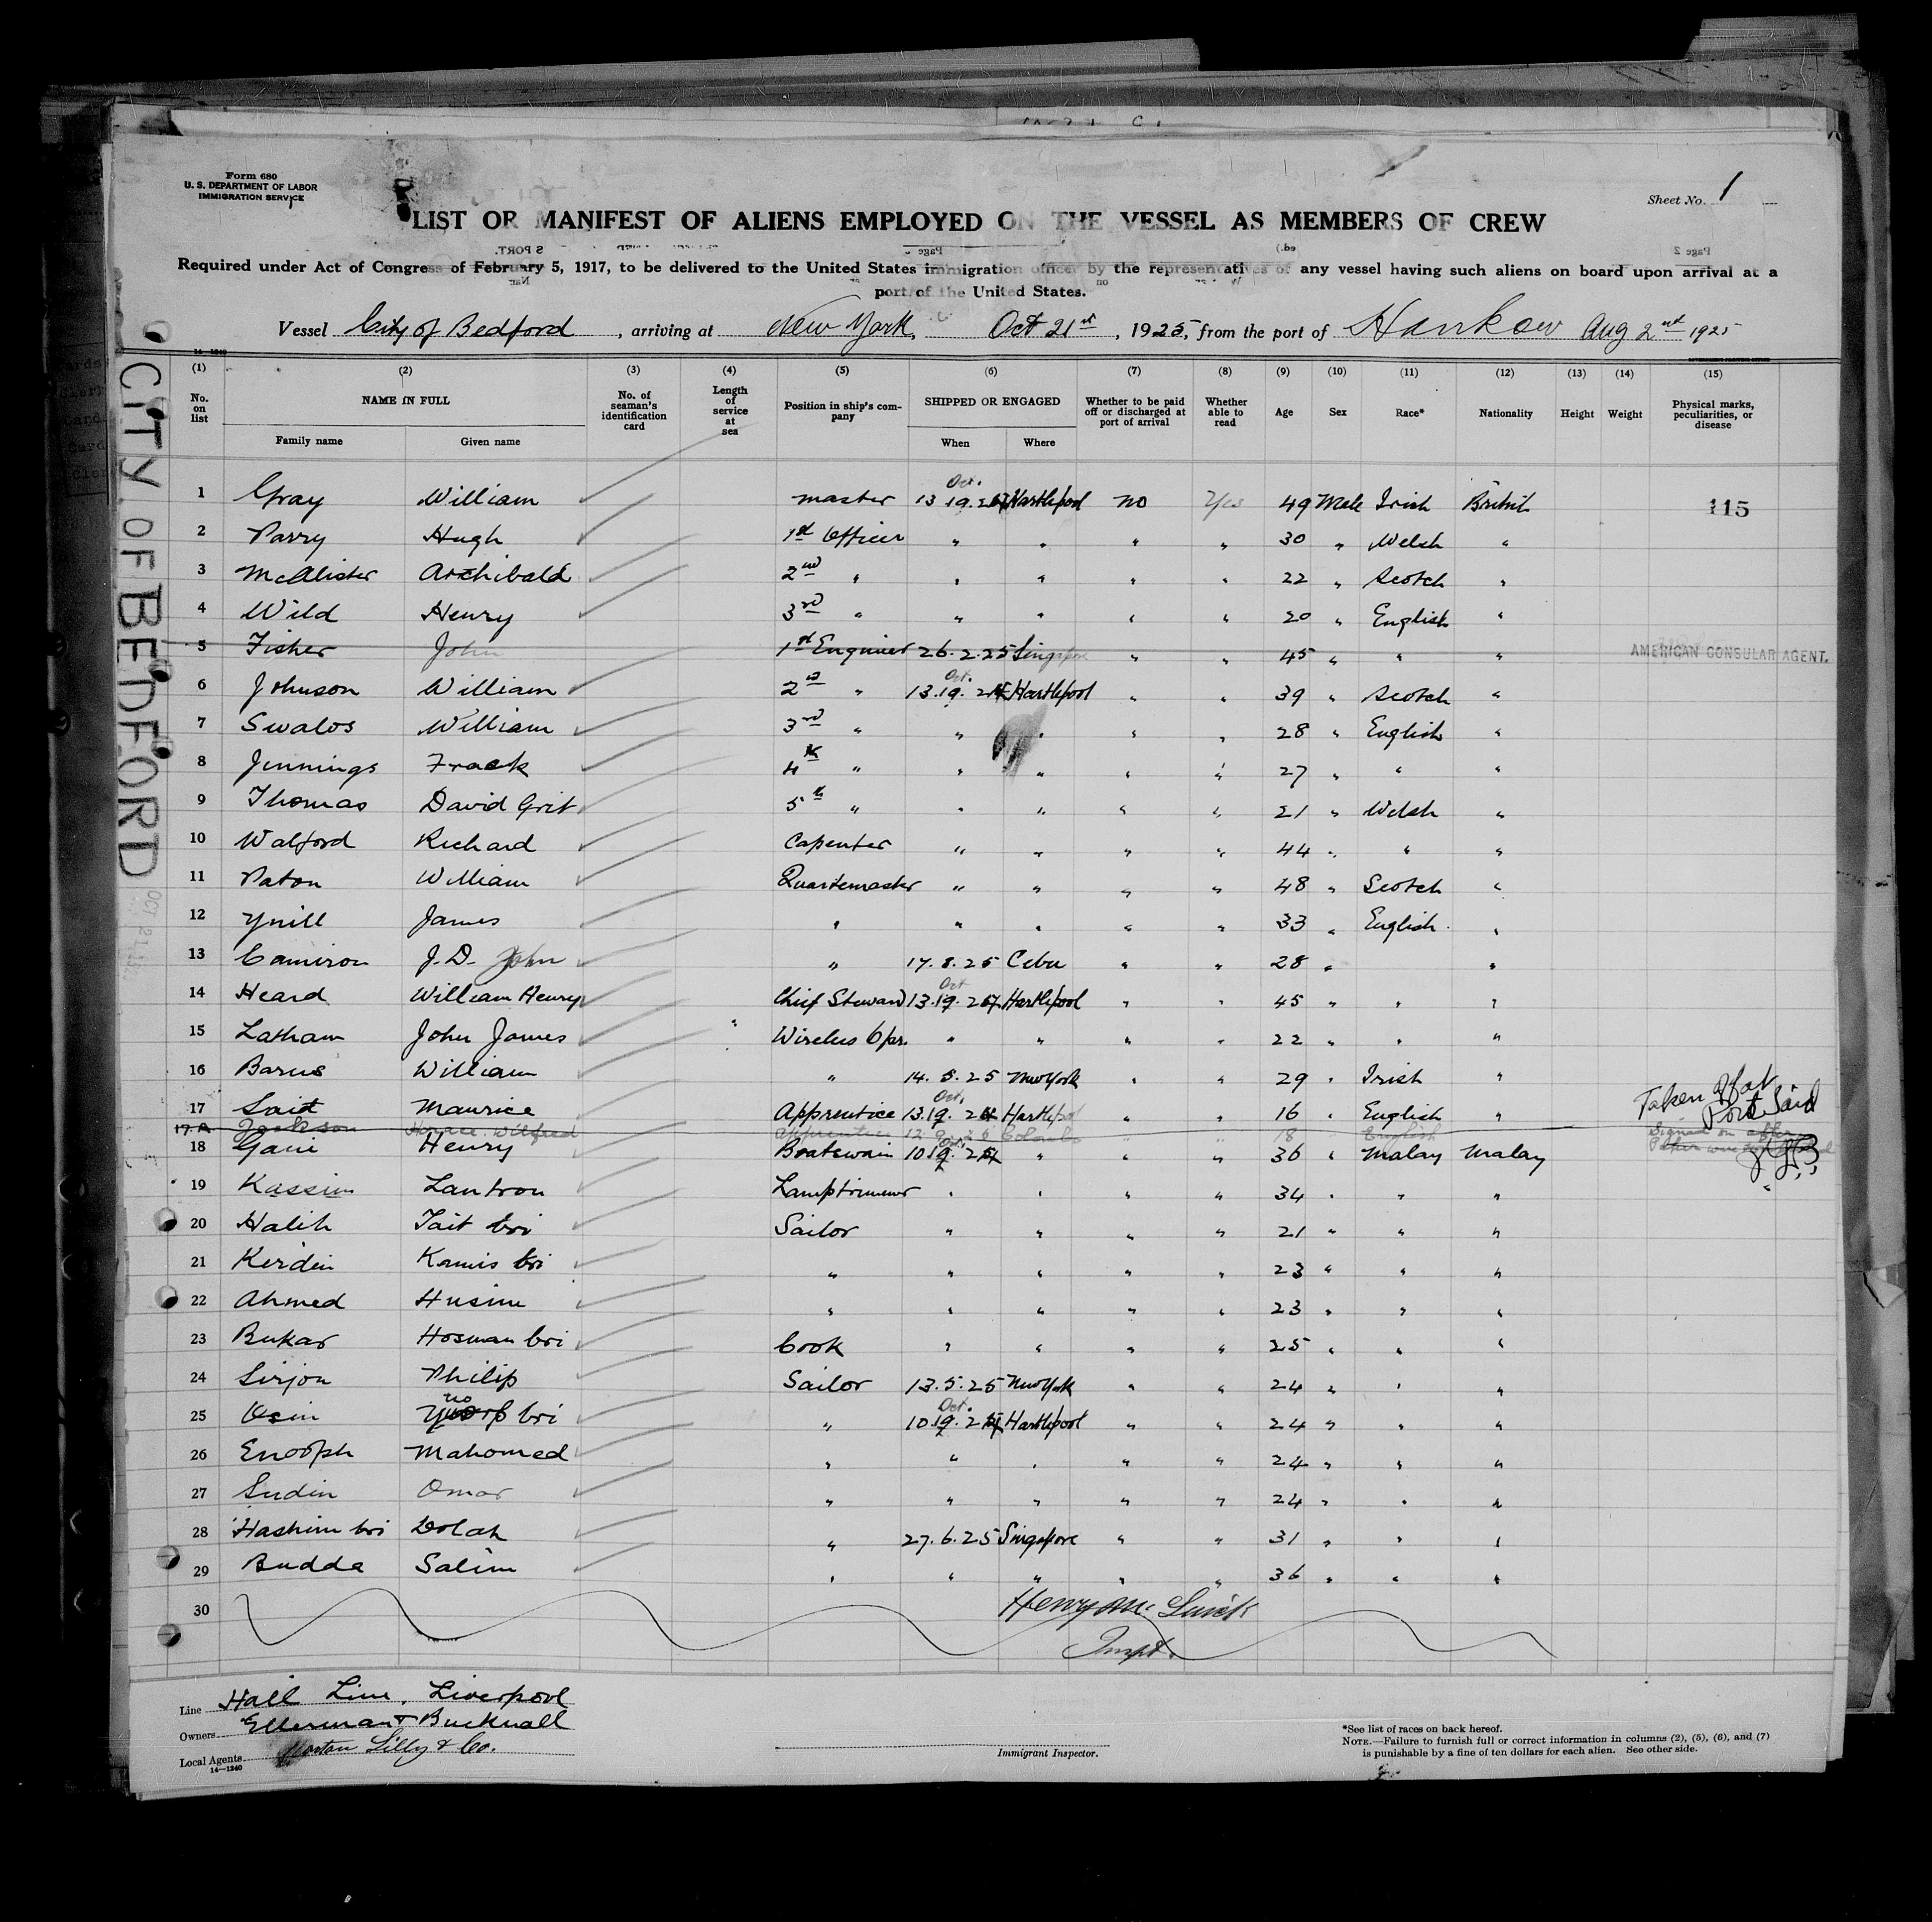 Form 680
U. S. DEPARTMENT OF LABOR
IMMIGRATION SERVICE
Sheet No. 1
LIST OR MANIFEST OF ALIENS EMPLOYED ON THE VESSEL AS MEMBERS OF CREW
Required under Act of Congress of February 5, 1917, to be delivered to the United States immigration officer by the representatives of any vessel having such aliens on board upon arrival at a
port of the United States.
Vessel City of Bedford, arriving at New York, Oct 21st, 1925, from the port of Hankow Aug 2nd 1925
CITY OF BEDFORD
OCT 21
(1) (2) (3) (4) (5) (6) (7) (8) (9) (10) (11) (12) (13) (14) (15)
No. on list NAME IN FULL No. of seaman's identification card Length of service at sea Position in ship's company SHIPPED OR ENGAGED Whether to be paid off or discharged at port of arrival Whether able to read Age Sex Race* Nationality Height Weight Physical marks, peculiarities, or disease
Family name Given name When Where
1 Gray William master Oct. 13 19. Hartlepool no Yes 49 Male Irish British 115
2 Parry Hugh 1st Officer " " " " 30 " Welsh "
3 McAlister Archibald 2nd " " " " " 22 " Scotch "
4 Wild Henry 3rd " " " " " 20 " English "
5 Fisher John 1st Enginier 26.2.25 Singapore " " 45 " " "
AMERICAN CONSULAR AGENT.
6 Johnson William 2nd " Oct. 13.19. Hartlepool " " 39 " Scotch "
7 Swalos William 3rd " " " " " 28 " English "
8 Jennings Frack 4th " " " " " 27 " " "
9 Thomas David Grit 5th " " " " " 21 " Welsh "
10 Walford Richard Capenter " " " " 44 " " "
11 Paton William Quartemaster " " " " 48 " Scotch "
12 James " " " " " 33 " English "
13 Camiron J. D. John " 17.8.25 Cebu " " 28 " "
14 Heard William Henry Chief Steward Oct 13.19. Hartlepool " " 45 " " "
15 Latham John James Wireless Opr. " " " " 22 " " "
16 Barns William " 14.5.25 New York " " 29 " Irish "
17 Said Maurice Apprentice Oct. 13.19. Hartlepool " " 16 " English "
Taken off at
Port Said
17A Jackson Horace Wilfred Apprentice Colombo " " 18 English
Signed on
18 Gani Henry Boatswain 10 " " " 36 " Malay Malay
19 Kassim Lantron Lamptrimmer " " " " 34 " " "
20 Halih Tait bri Sailor " " " " 21 " " "
21 Kerdin Kamis bri " " " " " 23 " " "
22 Ahmed Husin " " " " " 23 " " "
23 Bukar Hosman bri Cook " " " " 25 " " "
24 Sirjon Philip Sailor 13.5.25 New York " " 24 " " "
25 Osin bri " Oct. 10.19. Hartlepool " " 24 " " "
26 Enooph Mahomed " " " " " 24 " " "
27 Sudin Omar " " " " " 24 " " "
28 Hashim bri Dolah " 27.6.25 Singapore " " 31 " " "
29 Budda Salim " " " " " 36 " " "
30
Henry
Inspt.
Line Hall Line, Liverpool
Owners Ellerman & Bucknall
Local Agents Norton Lilly & Co.
14—1240
Immigrant Inspector.
*See list of races on back hereof.
NOTE.—Failure to furnish full or correct information in columns (2), (5), (6), and (7)
is punishable by a fine of ten dollars for each alien. See other side.